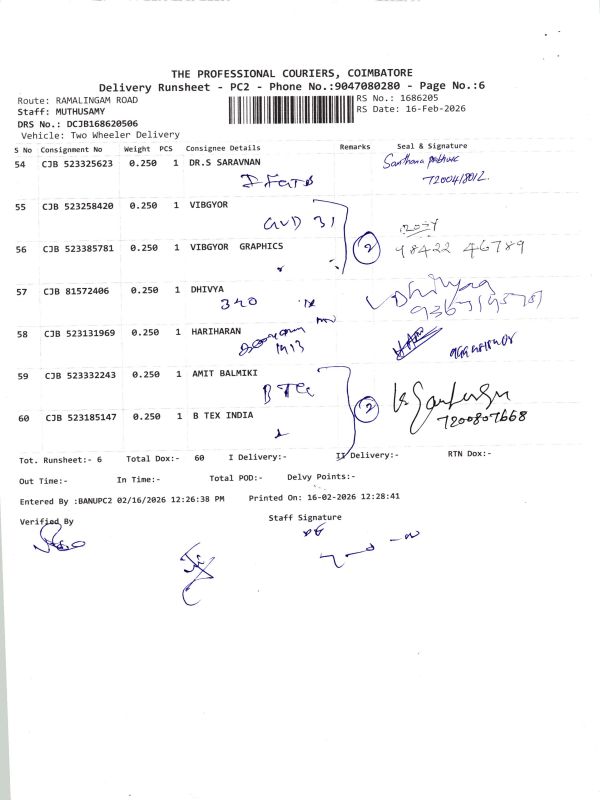 THE PROFESSIONAL COURIERS, COIMBATORE
Delivery Runsheet - PC2 - Phone No.:9047080280 - Page No.:6
Route: RAMALINGAM ROAD
RS No.: 1686205
Staff: MUTHUSAMY
RS Date: 16-Feb-2026
DRS No.: DCJB168620506
Vehicle: Two Wheeler Delivery
S No Consignment No Weight PCS Consignee Details Remarks Seal & Signature
54 CJB 523325623 0.250 1 DR.S SARAVNAN
7200418012
55 CJB 523258420 0.250 1 VIBGYOR
56 CJB 523385781 0.250 1 VIBGYOR GRAPHICS
2
98422 46789
57 CJB 81572406 0.250 1 DHIVYA
340
Dhivya
58 CJB 523131969 0.250 1 HARIHARAN
59 CJB 523332243 0.250 1 AMIT BALMIKI
2
60 CJB 523185147 0.250 1 B TEX INDIA
7200807668
Tot. Runsheet:- 6 Total Dox:- 60 I Delivery:- II Delivery:- RTN Dox:-
Out Time:- In Time:- Total POD:- Delvy Points:-
Entered By :BANUPC2 02/16/2026 12:26:38 PM Printed On: 16-02-2026 12:28:41
Verified By Staff Signature